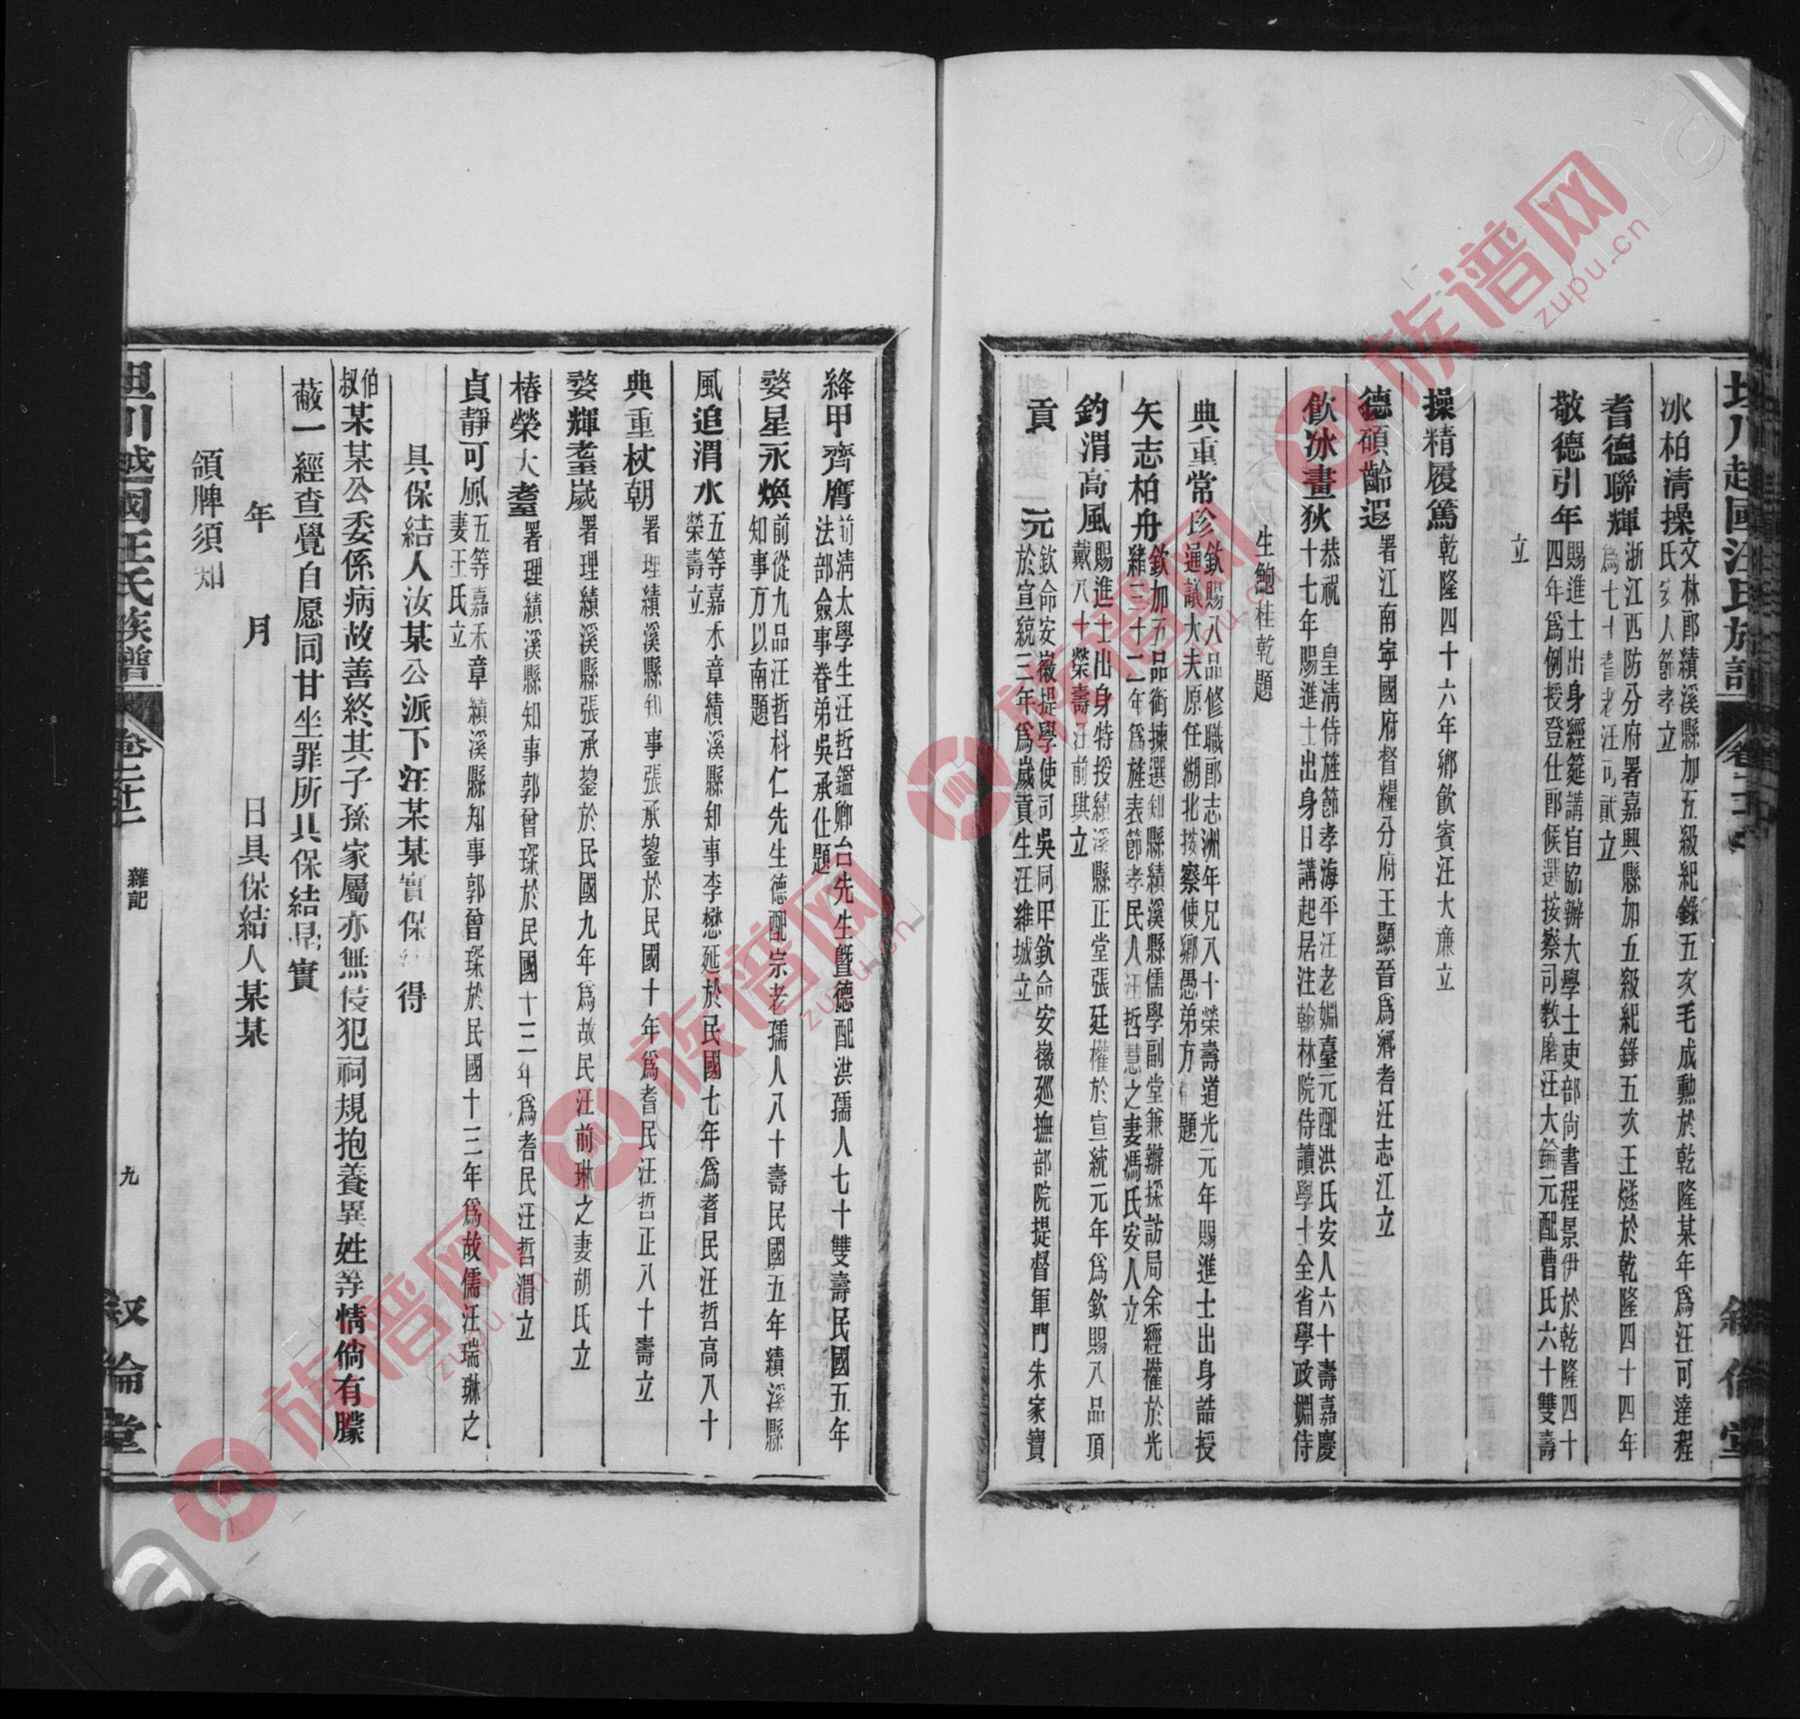 坦川越國汪氏族譜 卷二十
敘倫堂
冰柏清操 文林郎績溪縣加五級紀錄五次毛成勲於乾隆某年爲汪可達程
氏安人節孝立
耆德聯輝 浙江西防分府署嘉興縣加五級紀錄五次王燧於乾隆四十四年
爲七十耆老汪可貳立
敬德引年 賜進士出身經筵講官協辦大學士吏部尚書程景伊於乾隆四十
四年爲例授登仕郎候選按察司教磨汪大錀元配曹氏六十雙壽
立
操精履篤 乾隆四十六年鄉飲賓汪大亷立
德碩齡遐 署江南寧國府督糧分府王顯晉爲鄉耆汪志江立
飲冰畫狄 恭祝 皇清侍旌節孝海平汪老媚臺元配洪氏安人六十壽嘉慶
十七年賜進士出身日講起居注翰林院侍讀學士全省學政媚侍
生鮑桂乾題
典重常珍 欽賜八品修職郎志洲年兄八十榮壽道光元年賜進士出身誥授
通議大夫原任湖北按察使鄉愚弟方 題
矢志柏舟 欽加五品衔揀選知縣績溪縣儒學副堂兼辦採訪局余經權於光
緒二十二年爲旌表節孝民人汪哲慧之妻馮氏安人立
釣渭高風 賜進士出身特授績溪縣正堂張廷權於宣統元年爲欽賜八品頂
戴八十榮壽汪前琪立
貢元 欽命安徽提學使司吳同甲欽命安徽廵撫部院提督軍門朱家寶
於宣統三年爲歲貢生汪維城立
絳甲齊膺 前清太學生汪哲鑑卿台先生曁德配洪孺人七十雙壽民國五年
法部僉事眷弟吳承仕題
婺星永煥 前從九品汪哲科仁先生德配宗老孺人八十壽民國五年績溪縣
知事方以南題
風追渭水 五等嘉禾章績溪縣知事李懋延於民國七年爲耆民汪哲高八十
榮壽立
典重杖朝 署理績溪縣知事張承鋆於民國十年爲耆民汪哲正八十壽立
婺輝耋嵗 署理績溪縣張承鋆於民國九年爲故民汪前琳之妻胡氏立
椿榮大耋 署理績溪縣知事郭曾琛於民國十三年爲耆民汪哲渭立
貞靜可風 五等嘉禾章績溪縣知事郭曾琛於民國十三年爲故儒汪瑞琳之
妻王氏立
具保結人汝某公派下汪某某實保 得
伯叔某某公委係病故善終其子孫家屬亦無侵犯祠規抱養異姓等情倘有朦
蔽一經查覺自愿同甘坐罪所具保結是實
年 月 日具保結人某某
領牌須知
坦川越國汪氏族譜 卷二十 雜記 九 敘倫堂